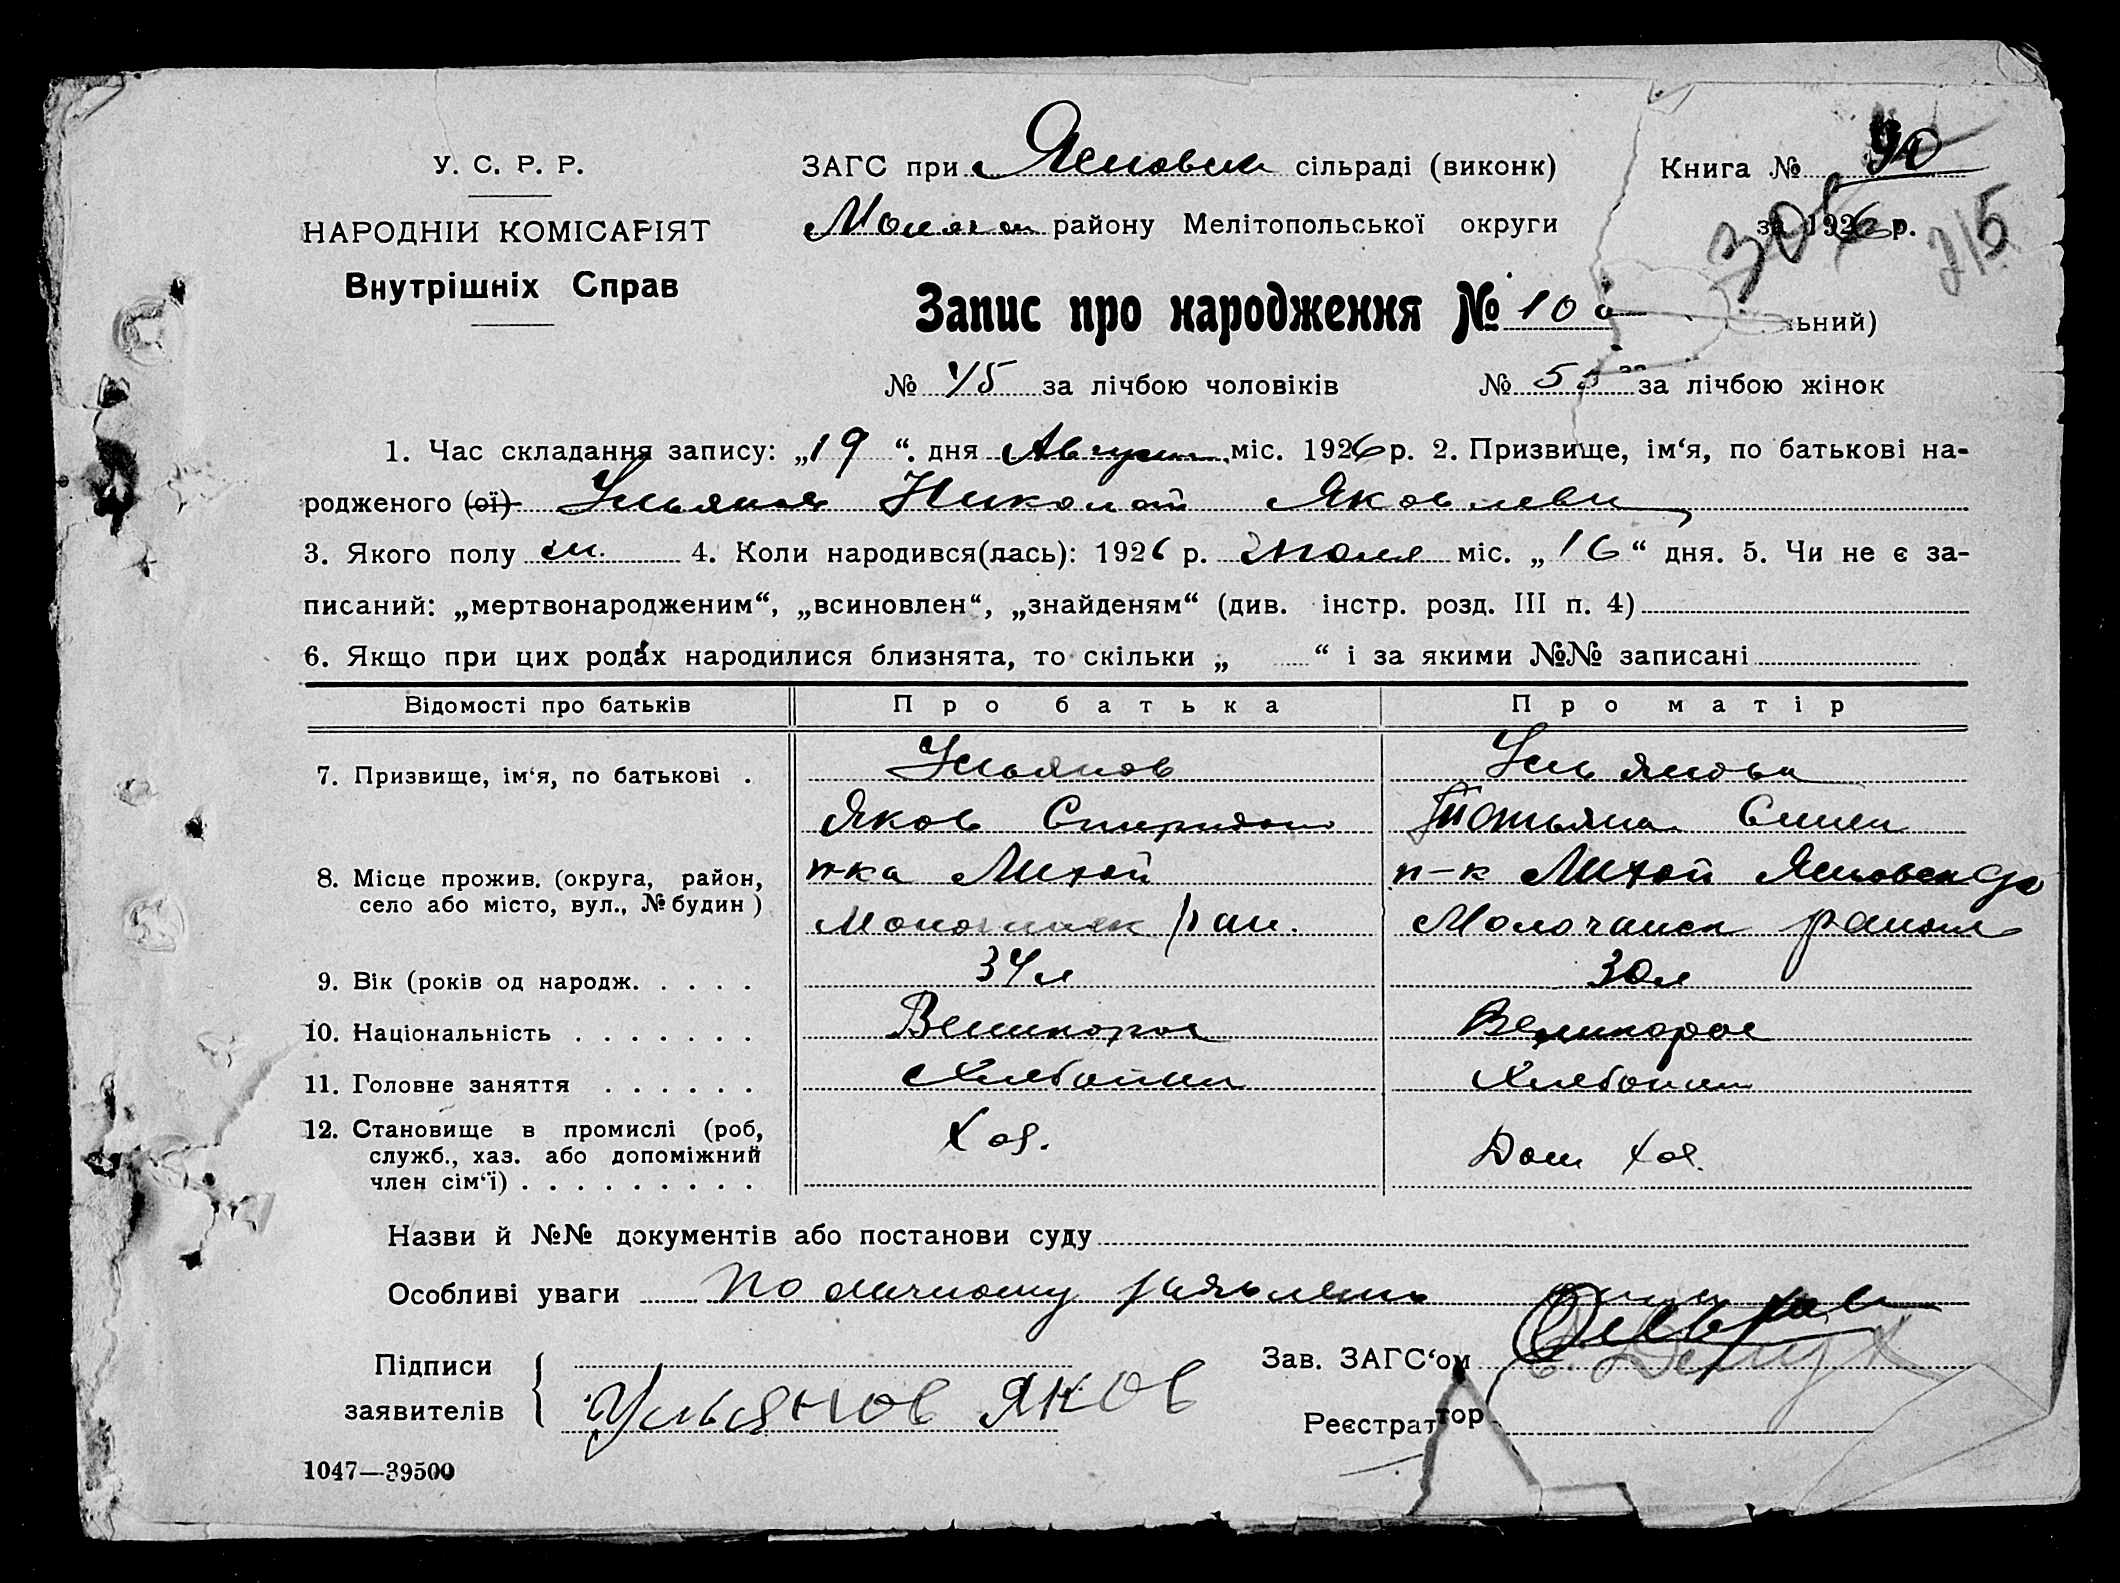 У. С. Р. Р.
НАРОДНІЙ КОМІСАРІЯТ
Внутрішніх Справ
ЗАГС при сільраді (виконк)
району Мелітопольської округи
Книга №
за 1926 р.
215
Запис про народження № 10 ьний)
№ 45 за лічбою чоловіків № за лічбою жінок
1. Час складання запису: „19“ дня Август міс. 1926 р. 2. Призвище, ім‘я, по батькові на-
родженого (ої) Ульянов Николай Яковлеви
3. Якого полу м. 4. Коли народився(лась): 1926 р. міс. „16“ дня. 5. Чи не є за-
писаний: „мертвонародженим“, „всиновлен“, „знайденям“ (див. інстр. розд. III п. 4)
6. Якщо при цих родах народилися близнята, то скільки „ “ і за якими №№ записані
Відомості про батьків Про батька Про матір
7. Призвище, ім‘я, по батькові . Ульянов Ульянова
Яков Спиридон Татьяна Семен
8. Місце прожив. (округа, район,
село або місто, вул., № будин )
п-ка Лихой п-к Лихой
рай. Молочанск района
9. Вік (років од народж. . . . . 34 л 30 л
10. Національність . . . . . . . Великорос Великорос
11. Головне заняття . . . . . . Хлебопаш Хлебопаш
12. Становище в промислі (роб,
служб., хаз. або допоміжний
член сім‘ї) . . . . . . . . .
Хоз. Дом хоз.
Назви й №№ документів або постанови суду
Особливі уваги По личному заявлению
Підписи
заявителів
Ульянов Яков
Зав. ЗАГС‘ом
Реєстратор
1047—39500